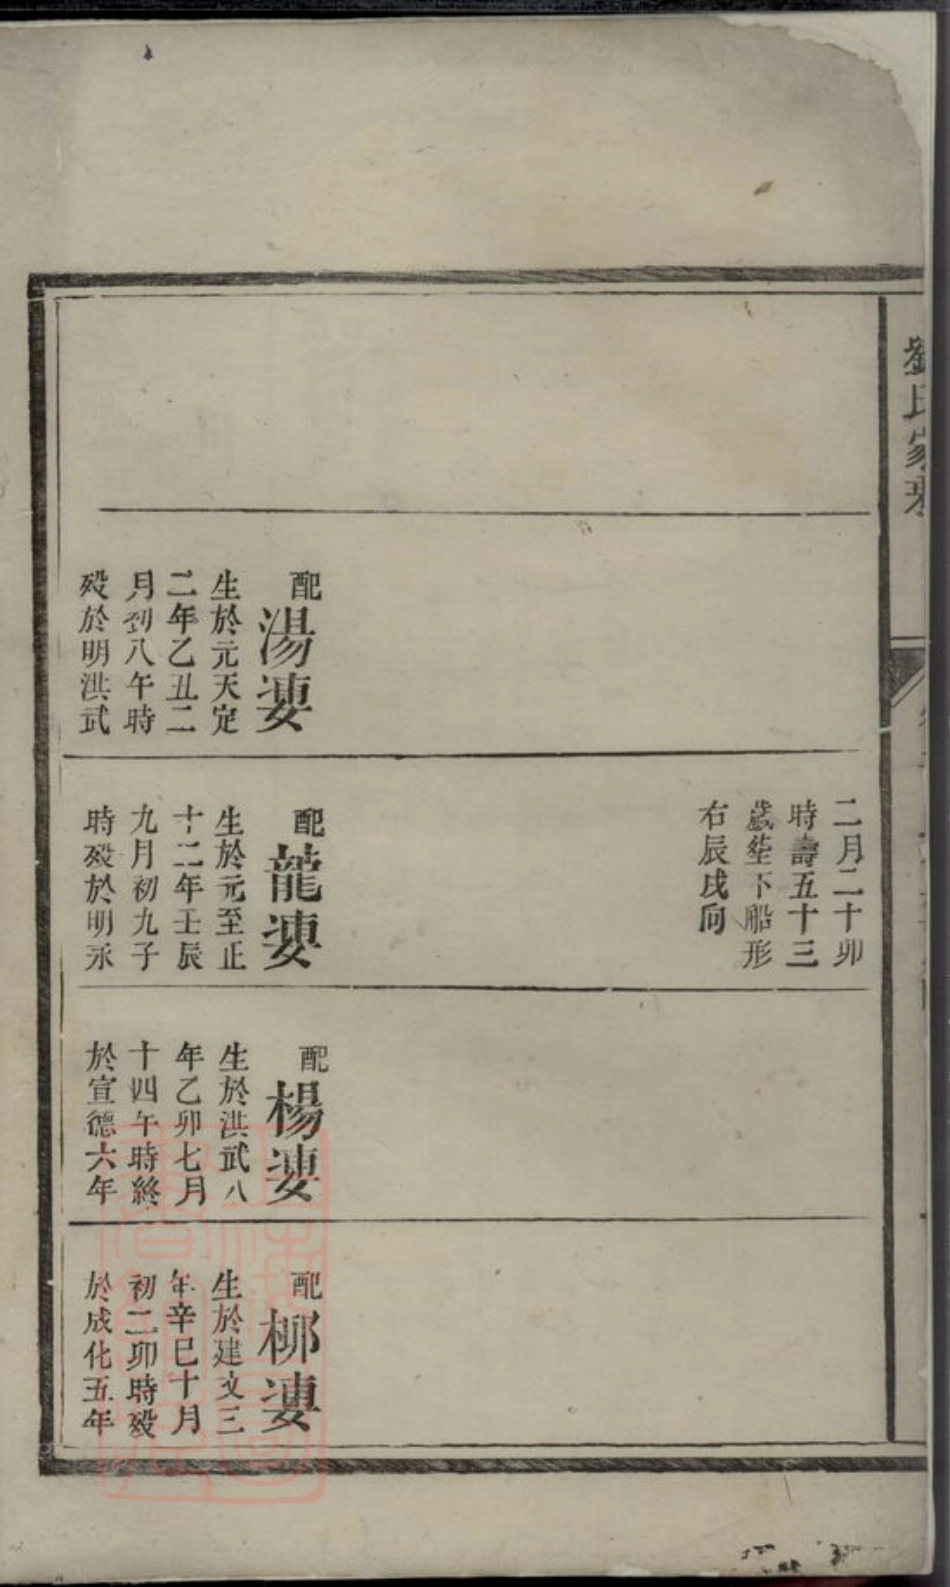 劉氏家乘
配湯妻
生於元天定
二年乙丑二
月初八午時
歿於明洪武
二月二十卯
時壽五十三
歲塟下船形
右辰戌向
配龍妻
生於元至正
十二年壬辰
九月初九子
時歿於明永
配楊妻
生於洪武八
年乙卯七月
十四午時終
於宣德六年
配柳妻
生於建文三
年辛巳十月
初二卯時歿
於成化五年